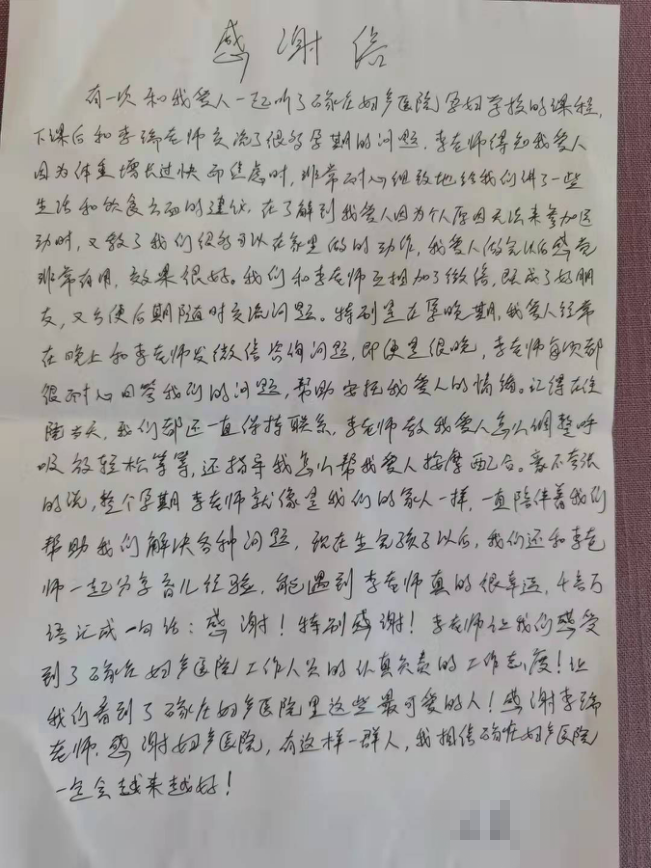 感谢信
有一次和我爱人一起听了石家庄妇产医院孕妇学校的课程,
下课后和李瑞老师交流了很多孕期的问题,李老师得知我爱人
因为体重增长过快而焦虑时,非常耐心细致地给我们讲了一些
生活和饮食方面的建议,在了解到我爱人因为个人原因无法来参加运
动时,又教了我们很多可以在家里做的动作,我爱人做完以后感觉
非常有用,效果很好。我们和李老师互相加了微信,既成了好朋
友,又方便后期随时交流问题。特别是在孕晚期,我爱人经常
在晚上和李老师发微信咨询问题,即便是很晚,李老师每次都
很耐心回答我们的问题,帮助安抚我爱人的情绪。记得在住
院当天,我们都还一直保持联系,李老师教我爱人怎么调整呼
吸放轻松等等,还指导我怎么帮我爱人按摩配合。毫不夸张
的说,整个孕期李老师就像是我们的家人一样,一直陪伴着我们
帮助我们解决各种问题,现在生完孩子以后,我们还和李老
师一起分享育儿经验,能遇到李老师真的很幸运,千言万
语汇成一句话:感谢!特别感谢!李老师让我们感受
到了石家庄妇产医院工作人员的认真负责的工作态度!让
我们看到了石家庄妇产医院里这些最可爱的人!感谢李瑞
老师,感谢妇产医院,有这样一群人,我相信石家庄妇产医院
一定会越来越好!